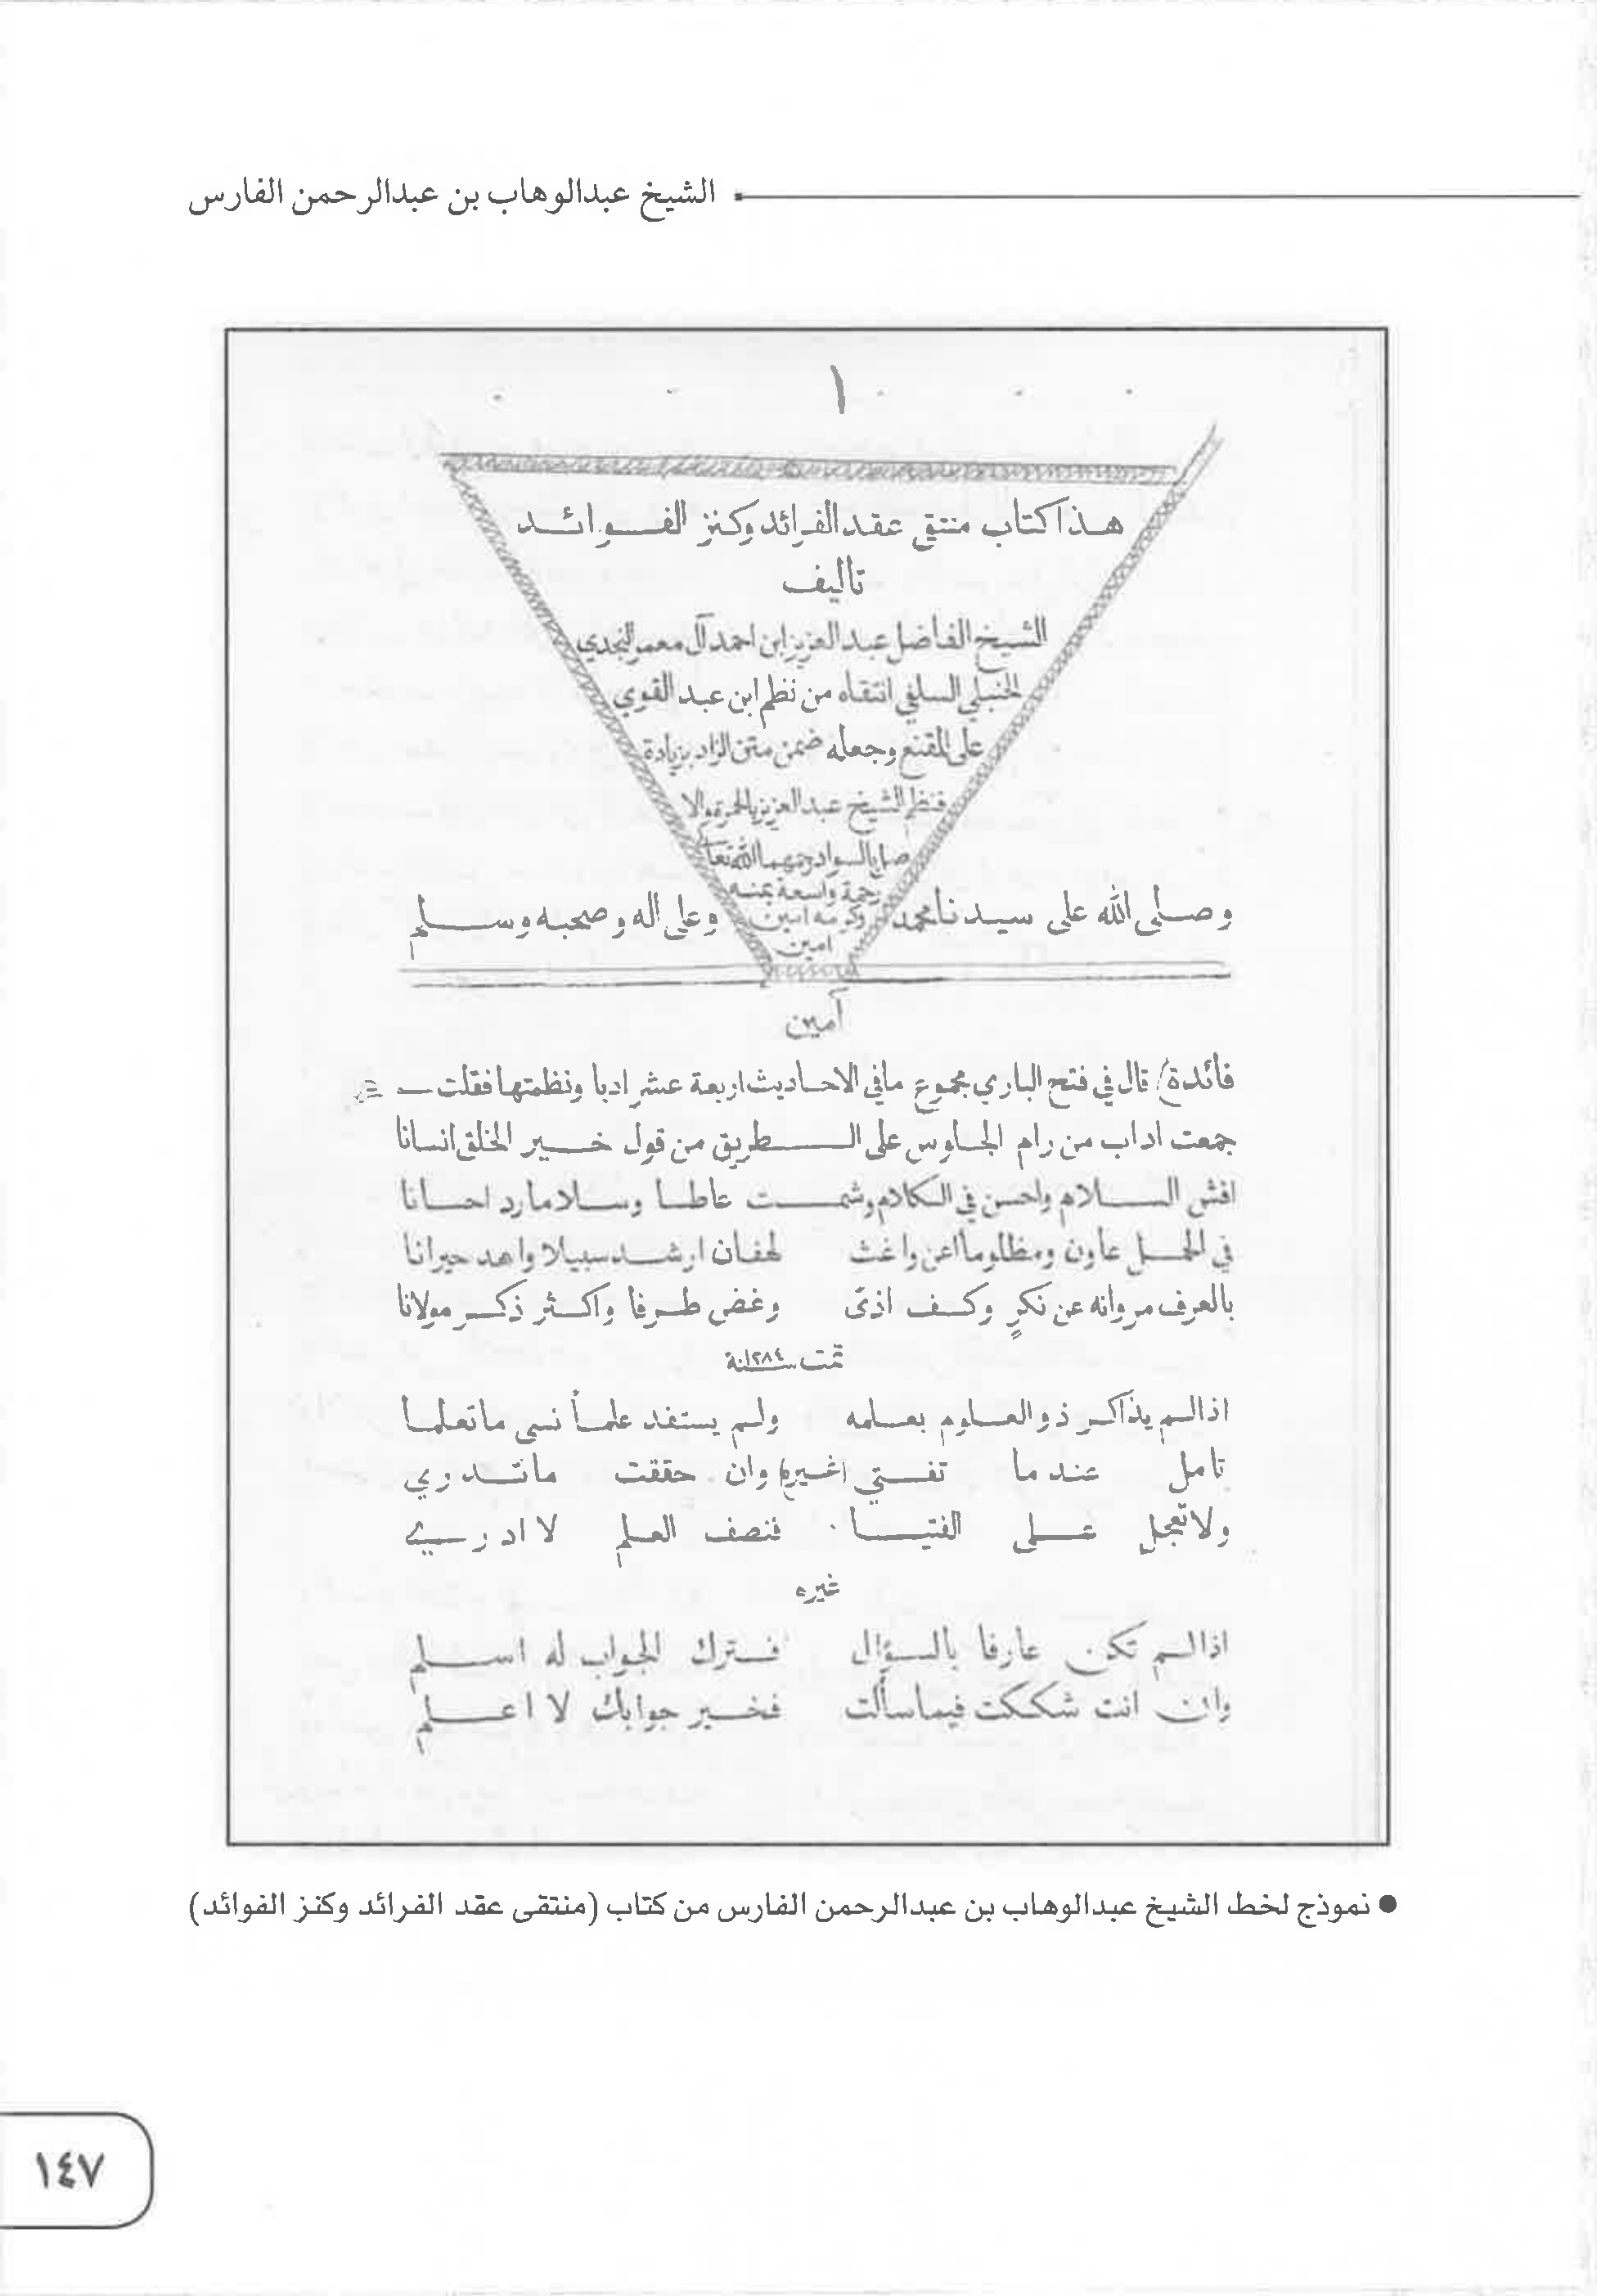 الشيخ عبدالوهاب بن عبدالرحمن الفارس
١
هذا كتاب منتقى عقد الفرائد وكنز الفوائد
تاليف
الشيخ الفاضل عبد العزيز ابن احمد آل معمر النجدي
الحنبلي السلفي انتقاه من نظم ابن عبد القوي
على المقنع وجعله ضمن متن الزاد بزيادة
فنظم الشيخ عبد العزيز بالحمرة والا
صل بالسواد رحمهما الله تعالى
رحمة واسعة بمنه
وكرمه امين
امين
وصلى الله على سيدنا محمد وعلى اله وصحبه وسلم
آمين
فائدة) قال في فتح الباري مجموع ما في الاحاديث اربعة عشر ادبا ونظمتها فقلت
جمعت اداب من رام الجلوس على الطريق من قول خير الخلق انسانا
افش السلام واحسن في الكلام وشمت عاطسا وسلاما رد احسانا
في الحمل عاون ومظلوما اعن واغث لهفان ارشد سبيلا واهد حيرانا
بالعرف مر وانه عن نكرٍ وكف اذىً وغض طرفا واكثر ذكر مولانا
تمت سنة ١٢٨٤
اذا لم يذاكر ذو العلوم بعلمه ولم يستفد علماً نسي ما تعلما
تامل عند ما تفتي (غيره) وان حققت ما تدري
ولا تعجل على الفتيا فنصف العلم لا ادري
غيره
اذا لم تكن عارفا بالسؤال فترك الجواب له اسلم
وان انت شككت فيما سألت فخير جوابك لا اعلم
● نموذج لخط الشيخ عبدالوهاب بن عبدالرحمن الفارس من كتاب (منتقى عقد الفرائد وكنز الفوائد)
١٤٧